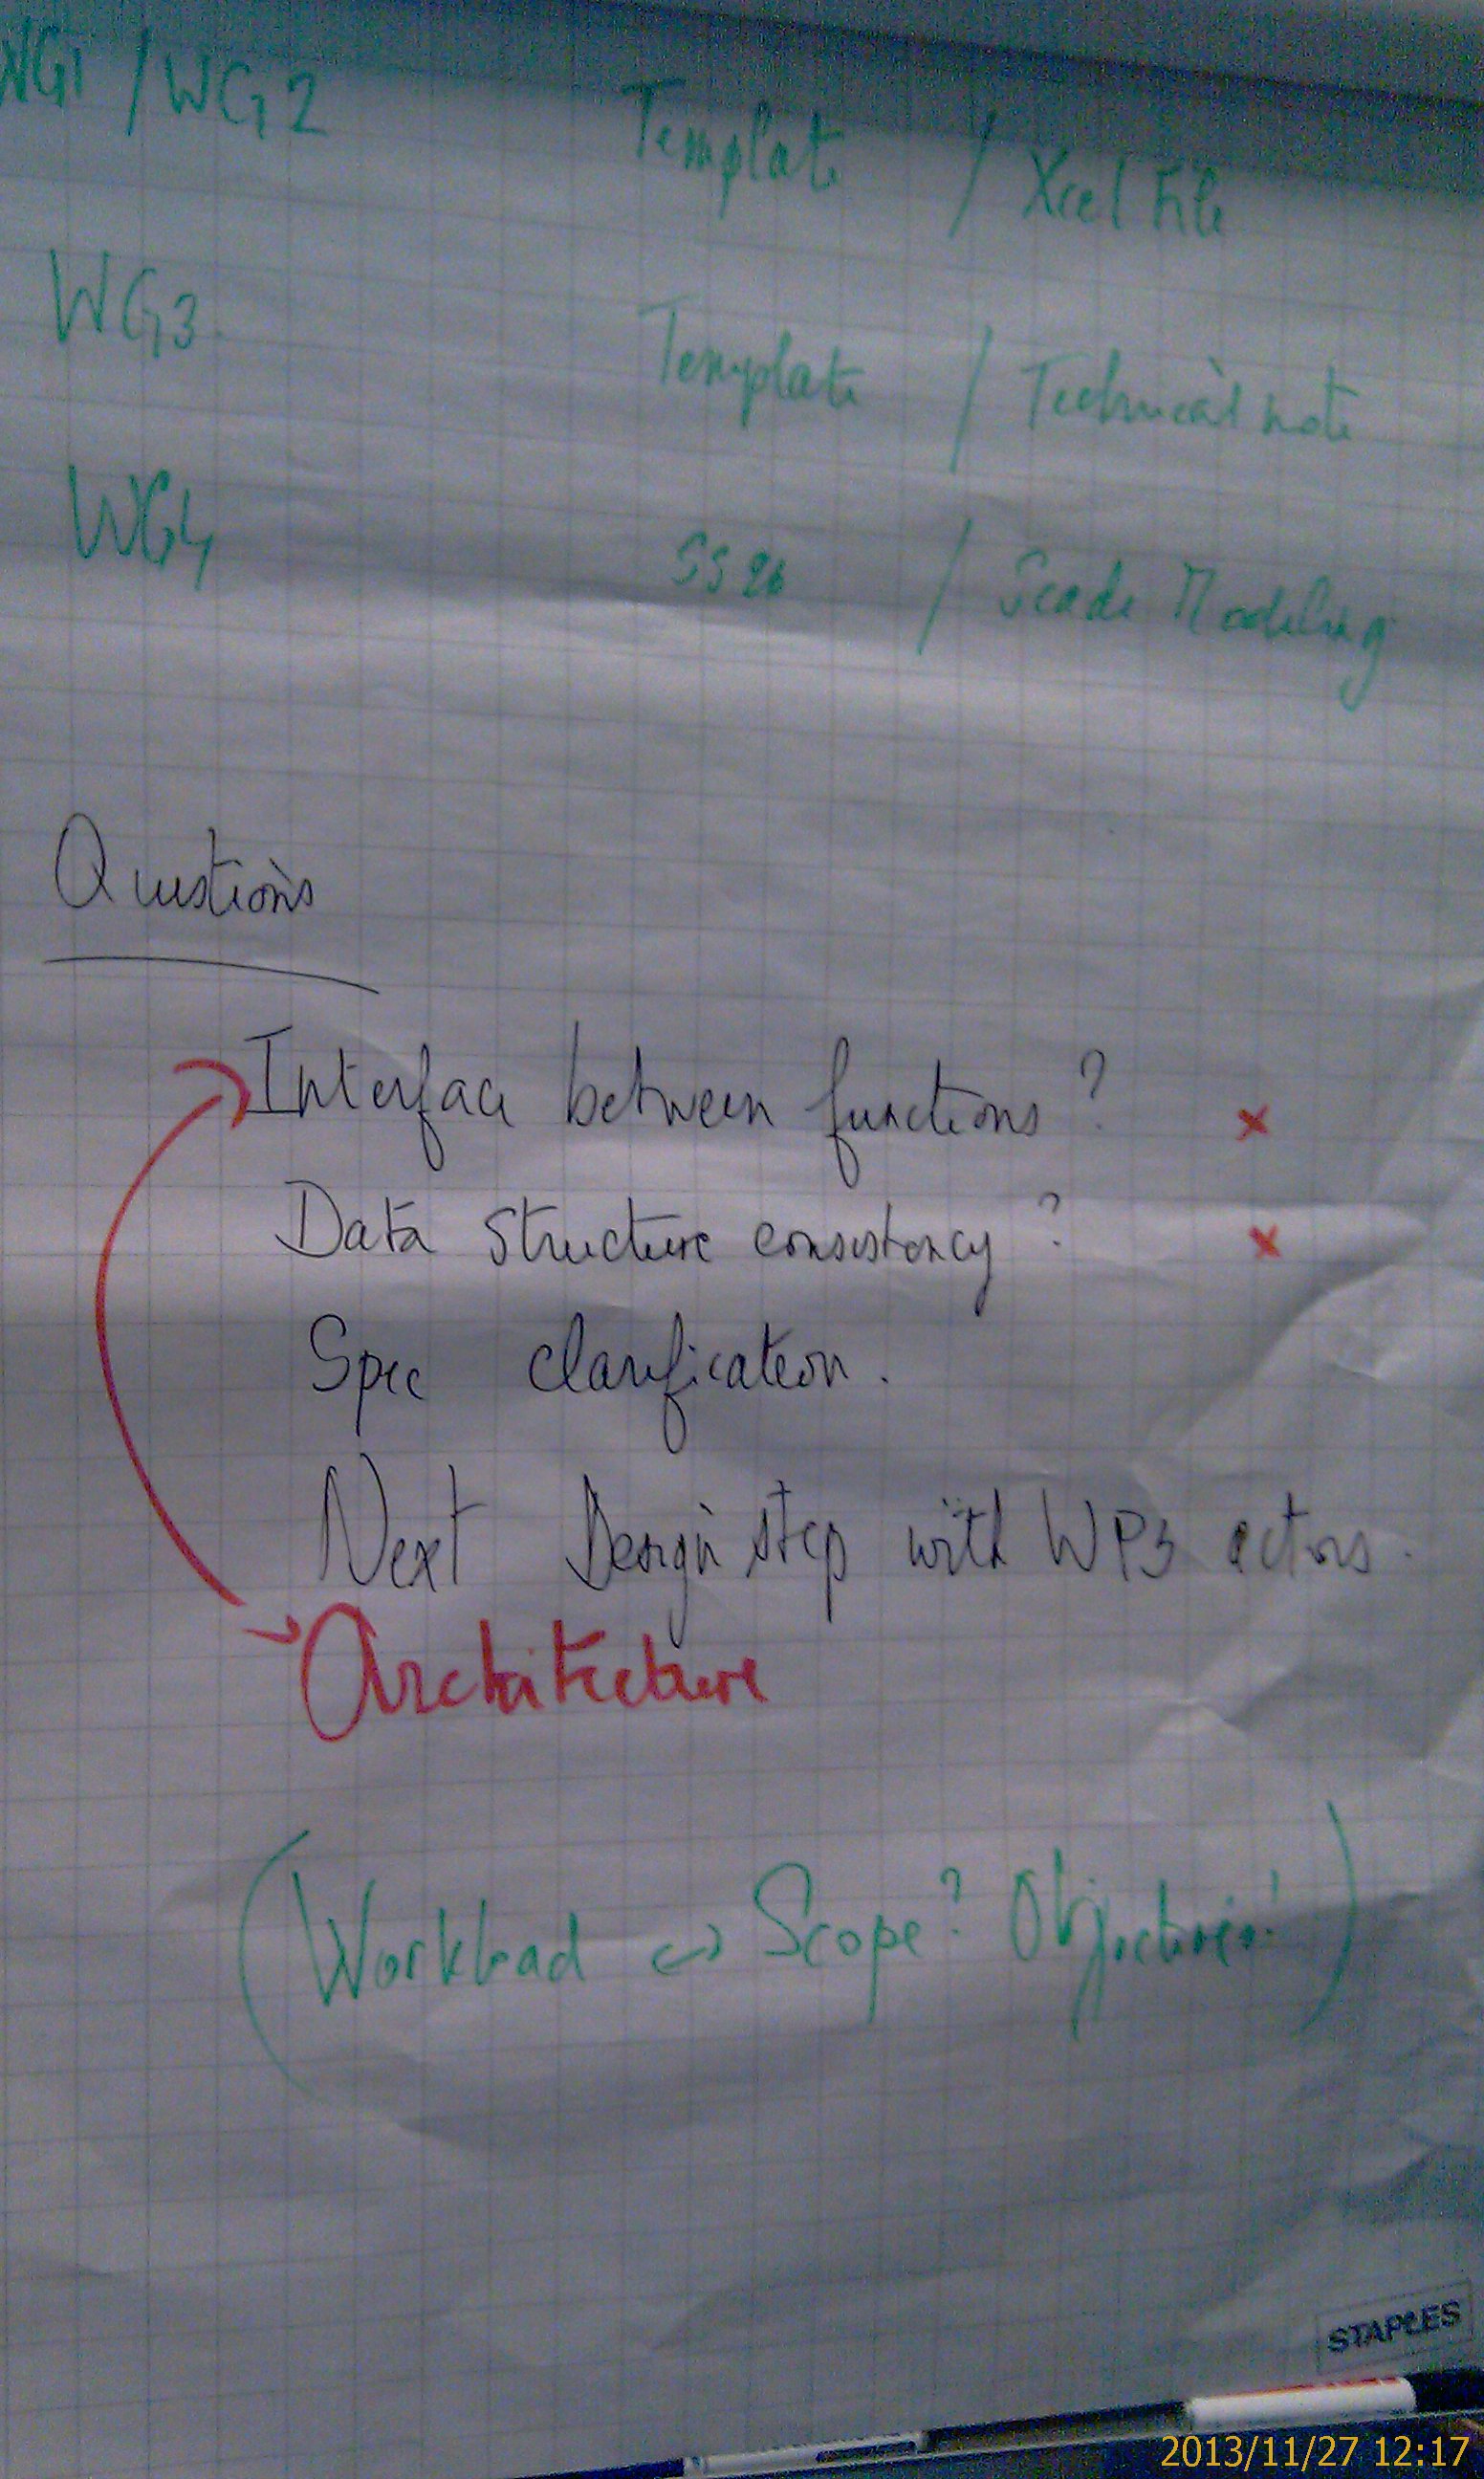 WG1 / WG2 Template / Xcel File
WG3 Template / Technical note
WG4 SS26 / Scade Modeling
Questions
Interface between functions ? x
Data structure consistency ? x
Spec clarification.
Next Design step with WP3 actors.
Architecture
(Workload <-> Scope? Objectives!)
STAPLES
2013/11/27 12:17